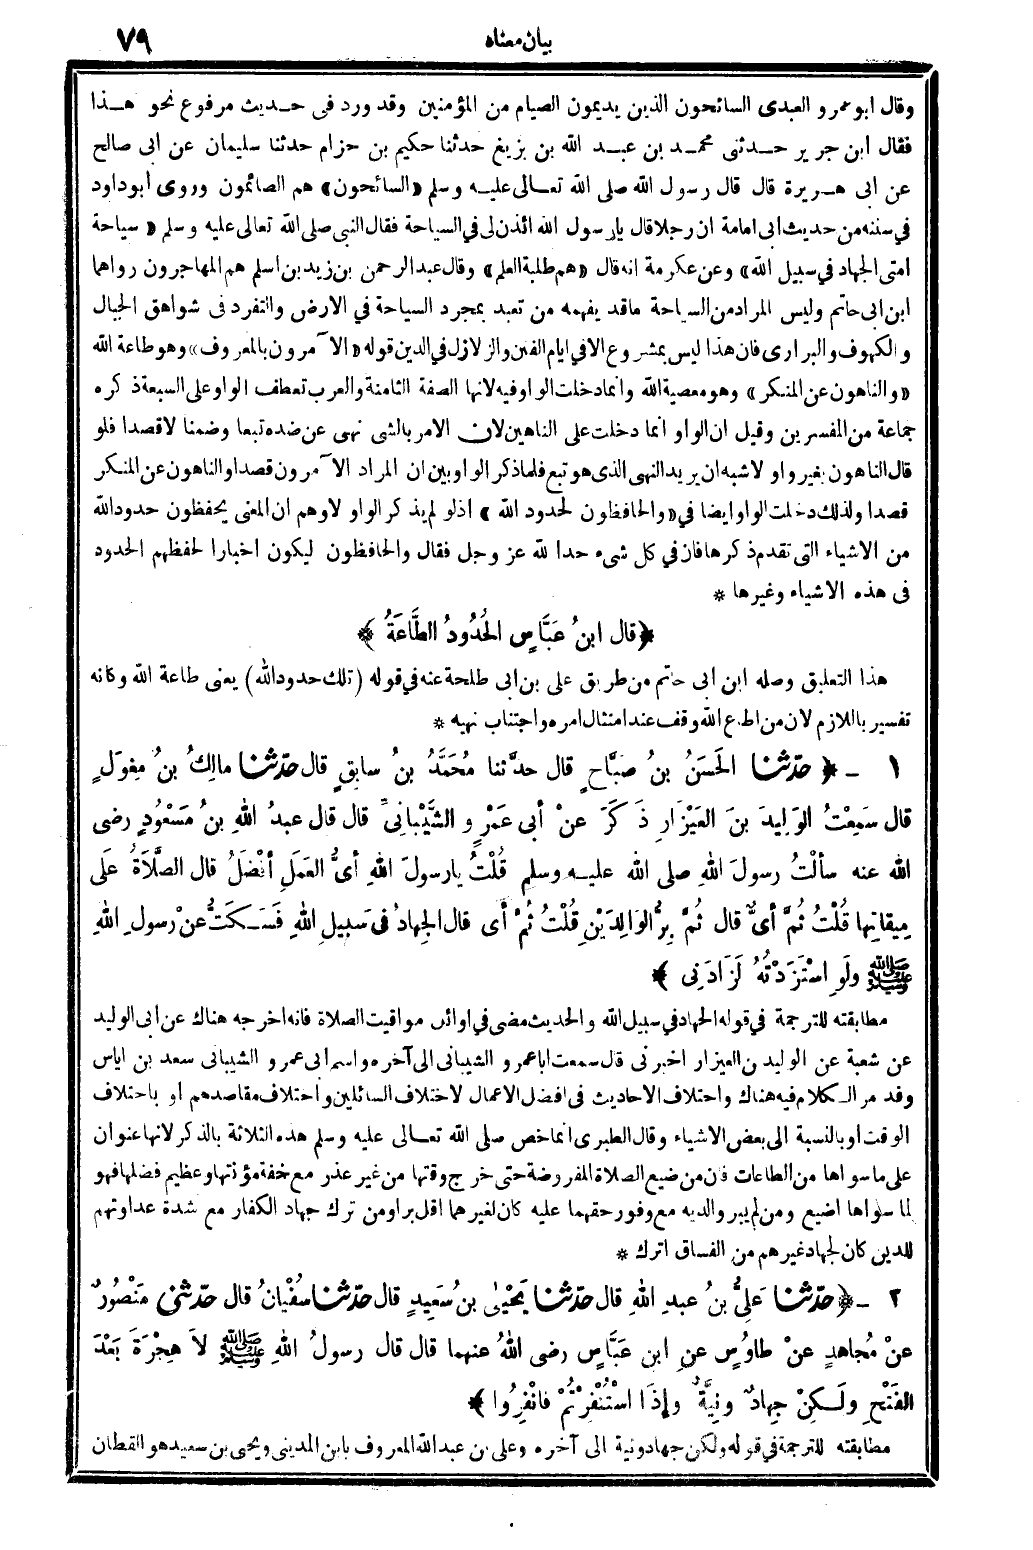 بيان معناه ٧٩
وقال ابو عمرو العبدى السائحون الذين يديمون الصيام من المؤمنين وقد ورد فى حديث مرفوع نحو هذا
فقال ابن جرير حدثنى محمد بن عبد الله بن بزيغ حدثنا حكيم بن حزام حدثنا سليمان عن ابى صالح
عن ابى هريرة قال قال رسول الله صلى الله تعالى عليه وسلم «السائحون» هم الصائمون وروى أبو داود
في سننه من حديث ابى امامة ان رجلا قال يا رسول الله ائذن لى في السياحة فقال النبى صلى الله تعالى عليه وسلم « سياحة
امتى الجهاد في سبيل الله» وعن عكرمة انه قال «هم طلبة العلم» وقال عبد الرحمن بن زيد بن اسلم هم المهاجرون رواهما
ابن ابى حاتم وليس المراد من السياحة ما قد يفهمه من تعبد بمجرد السياحة في الارض والتفرد فى شواهق الجبال
والكهوف والبرارى فان هذا ليس بمشروع الا في ايام الفتن والزلازل في الدين قوله «الآمرون بالمعروف» وهو طاعة الله
«والناهون عن المنكر» وهو معصية الله وانما دخلت الواو فيه لانها الصفة الثامنة والعرب تعطف الواو على السبعة ذكره
جماعة من المفسرين وقيل ان الواو انما دخلت على الناهين لان الامر بالشى نهى عن ضده تبعا وضمنا لا قصدا فلو
قال الناهون بغير واو لاشبه ان يريد النهى الذى هو تبع فلما ذكر الواو بين ان المراد الآمرون قصدا والناهون عن المنكر
قصدا ولذلك دخلت الواو ايضا في «والحافظون لحدود الله » اذ لو لم يذكر الواو لاوهم ان المعنى يحفظون حدود الله
من الاشياء التى تقدم ذكرها فان في كل شىء حدا لله عز وجل فقال والحافظون ليكون اخبارا لحفظهم الحدود
فى هذه الاشياء وغيرها *
﴿قال ابنُ عَبَّاسٍ الحُدُودُ الطَّاعَةُ ﴾
هذا التعليق وصله ابن ابى حاتم من طريق على بن ابى طلحة عنه في قوله (تلك حدود الله) يعنى طاعة الله وكانه
تفسير باللازم لان من اطاع الله وقف عند امتثال امره واجتناب نهيه *
١ - ﴿ حدّثنا الحَسَنُ بنُ صَبَّاحٍ قال حدَّثنا مُحَمَّدُ بنُ سابِقٍ قال حدّثنا مالِكُ بنُ مِغْوَلٍ
قال سَمِعْتُ الوَلِيدَ بنَ العَيْزَارِ ذَكَرَ عنْ أبى عَمْرٍو الشَّيْبانِىِّ قال قال عبدُ اللهِ بنُ مَسْعُودٍ رضى
الله عنه سألْتُ رسولَ اللهِ صلى الله عليه وسلم قُلْتُ يارسولَ اللهِ أىُّ العَمَلِ أفْضَلُ قال الصَّلَاةُ علَى
مِيقاتِها قُلْتُ ثُمَّ أىُّ قال ثُمَّ بِرُّ الوَالِدَيْنِ قُلْتُ ثُمَّ أى قال الجِهادُ فى سَبيلِ اللهِ فَسَكَتُّ عنْ رسولِ اللهِ
ﷺ ولَوِ اسْتَزَدْتُهُ لَزَادَنِى ﴾
مطابقته للترجمة في قوله الجهاد في سبيل الله والحديث مضى في اوائل مواقيت الصلاة فانه اخرجه هناك عن ابى الوليد
عن شعبة عن الوليد بن العيزار اخبرنى قال سمعت ابا عمرو الشيبانى الى آخره واسم ابى عمرو الشيبانى سعد بن اياس
وقد مر الكلام فيه هناك واختلاف الاحاديث فى افضل الاعمال لاختلاف السائلين واختلاف مقاصدهم او باختلاف
الوقت او بالنسبة الى بعض الاشياء وقال الطبرى انما خص صلى الله تعالى عليه وسلم هذه الثلاثة بالذكر لانها عنوان
على ما سواها من الطاعات فان من ضيع الصلاة المفروضة حتى خرج وقتها من غير عذر مع خفة مؤنتها وعظيم فضلها فهو
لما سواها اضيع ومن لم يبر والديه مع وفور حقهما عليه كان لغيرهما اقل برا ومن ترك جهاد الكفار مع شدة عداوتهم
للدين كان لجهاد غيرهم من الفساق اترك *
٢ - ﴿حدّثنا عَلِىُّ بنُ عبدِ اللهِ قال حدّثنا يَحْيَى بنُ سَعِيدٍ قال حدّثنا سُفْيانُ قال حدّثنى مَنْصُورٌ
عنْ مُجاهِدٍ عنْ طاوُسٍ عنِ ابنِ عَبَّاسٍ رضى اللهُ عنهما قال قال رسولُ اللهِ ﷺ لاَ هِجْرَةَ بَعْدَ
الفَتْحِ ولَكِنْ جِهادٌ ونِيَّةٌ وإذَا اسْتُنْفِرْتُمْ فانْفِرُوا ﴾
مطابقته للترجمة في قوله ولكن جهاد ونية الى آخره وعلى بن عبد الله المعروف بابن المدينى ويحيى بن سعيد هو القطان